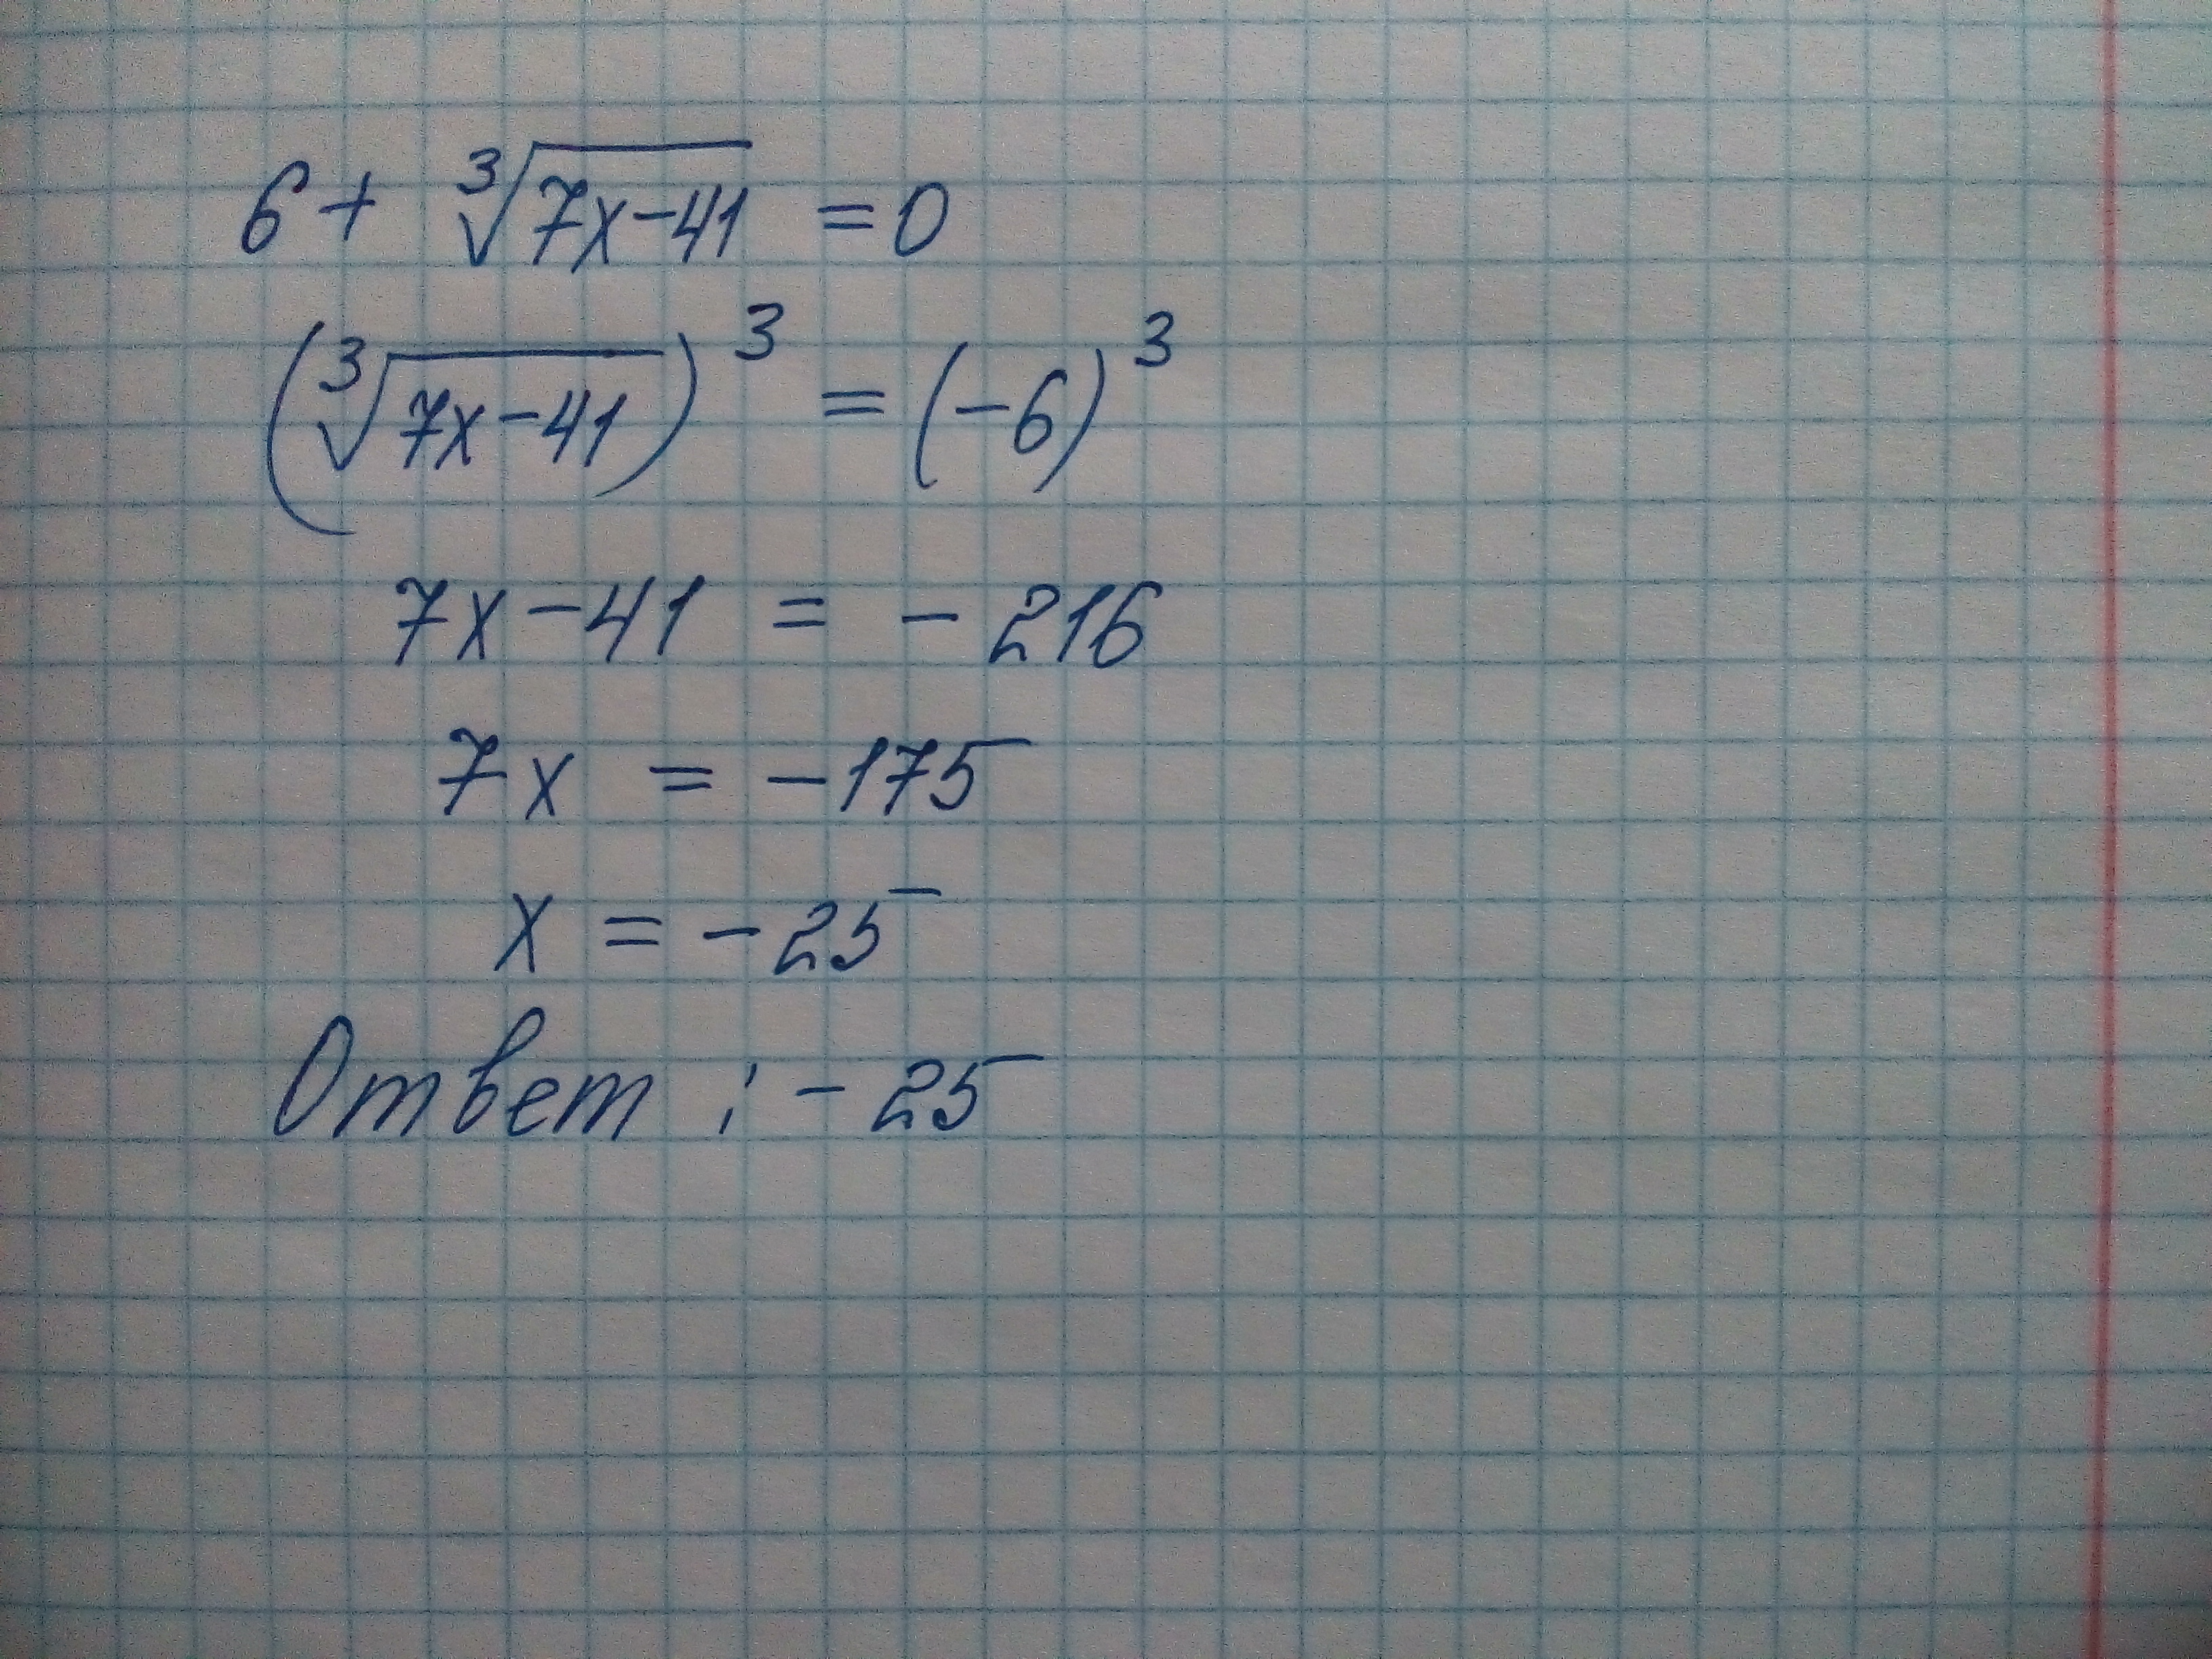 6 + ∛(7x-41) = 0
(∛(7x-41))³ = (-6)³
7x-41 = -216
7x = -175
x = -25
Ответ : -25